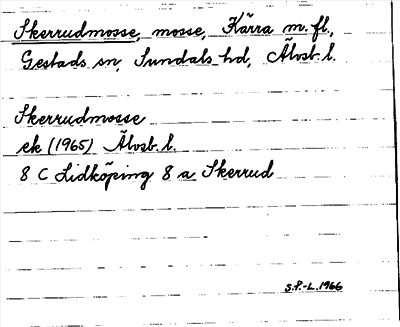 Skerrudmosse, mosse, Kärra m. fl.,
Gestads sn, Sundals hd, Älvsb. l.
Skerrudmosse
ek (1965) Älvsb. l.
8 C Lidköping 8 a Skerrud
S.P.-L. 1966